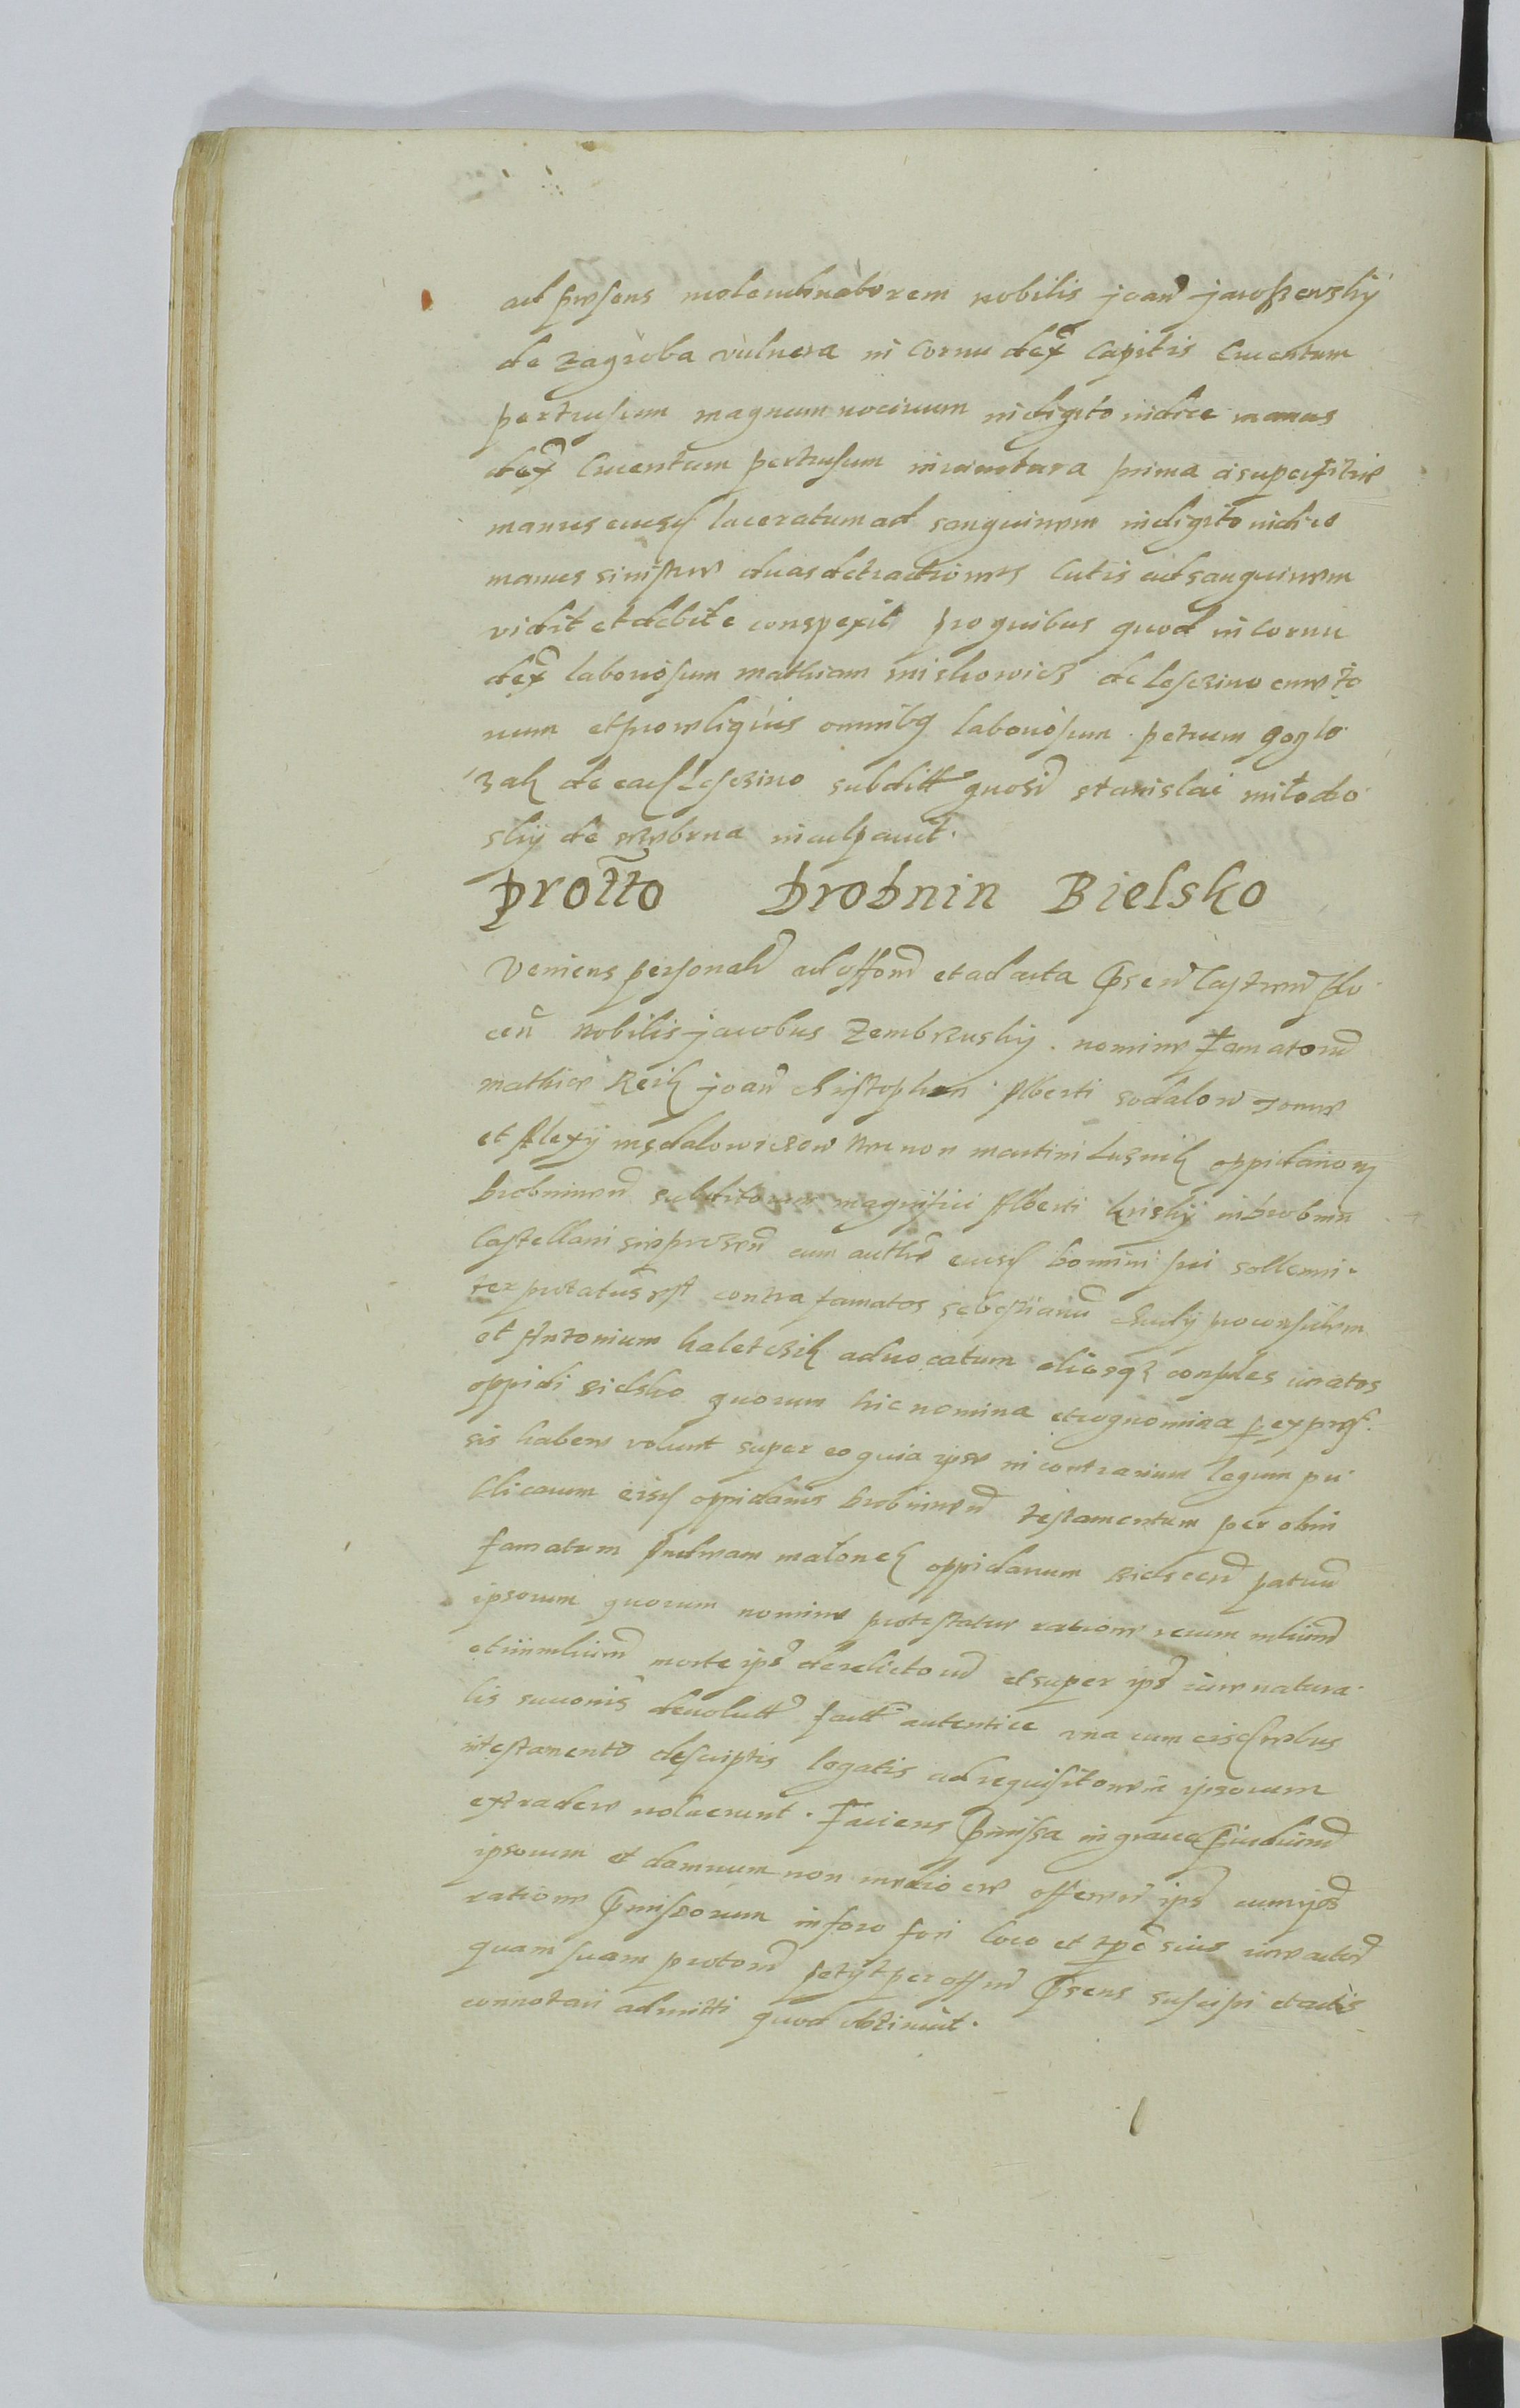 ad praesens molendinatorem nobilis joan̄ jaroszewskÿ
de Zagroba vulnera in cornu dex̄ capitis cruentum
pertusum magnum nocivum in digito indice manus
dex̄ cruentum pertusum in iunctura prima a superficie
manus eiusd laceratum ad sanguinem in digito indice
manus sinistrae duas detractiones cutis ad sanguinem
vidit et debite conspexit pro quibus quod in cornu
dex̄ laboriosum mathiam miskowicz de lesczino
num et pro reliquis omnibq laboriosum petrum goylo
zak de ead Lesczino subditt gnosi stanislai miłodro
skÿ de srebrna inculpavit.
Protto Drobnin Bielsko
Veniens personalr ad offm et ad acta pnsen Castren plo
cen nobilis jacobus Zembrzuskÿ nomine famatorum
mathiae Reik joan christophori Alberti sodalow Tomae
et Alexÿ mędalowiczow nec non martini Luznik oppidanorz
drobninen subditorum magnifici Alberti kriskÿ in drobnin
Castellani sieprcen cum authte eiusd domini sui sollenni
ter protatus est contra famatos sebestianu proconsulem
et Antonium haletczik advocatum aliosqz consules iuratos
oppidi Bielsko quorum hic nomina et cognomina p expres
sis habere volunt super eo quia ipse in contrarium legum pu
blicarum eisd oppidanis drobninen testamentum per olim
famatum Andream malonek oppidanum Bielscen patruu
ipsorum quorum nomine protestatur ratione rerum mlium
et immlium morte ips derelictorum et super ips iure natura
lis succonis devolutt factt autentice vna cum eisd rebus
in testamento descriptis legatis ad requisitionem ipsorum
extradere noluerunt. Faciens pmissa in grave piudium
ipsorum et damnum non mediocre offerens ips cum ijsd
ratione pmissorum in foro fori loco et tpe suis iure acturum
quam suam protom petÿt per offm pnsens suscipi et actis
connotari admitti quod obtinuit.